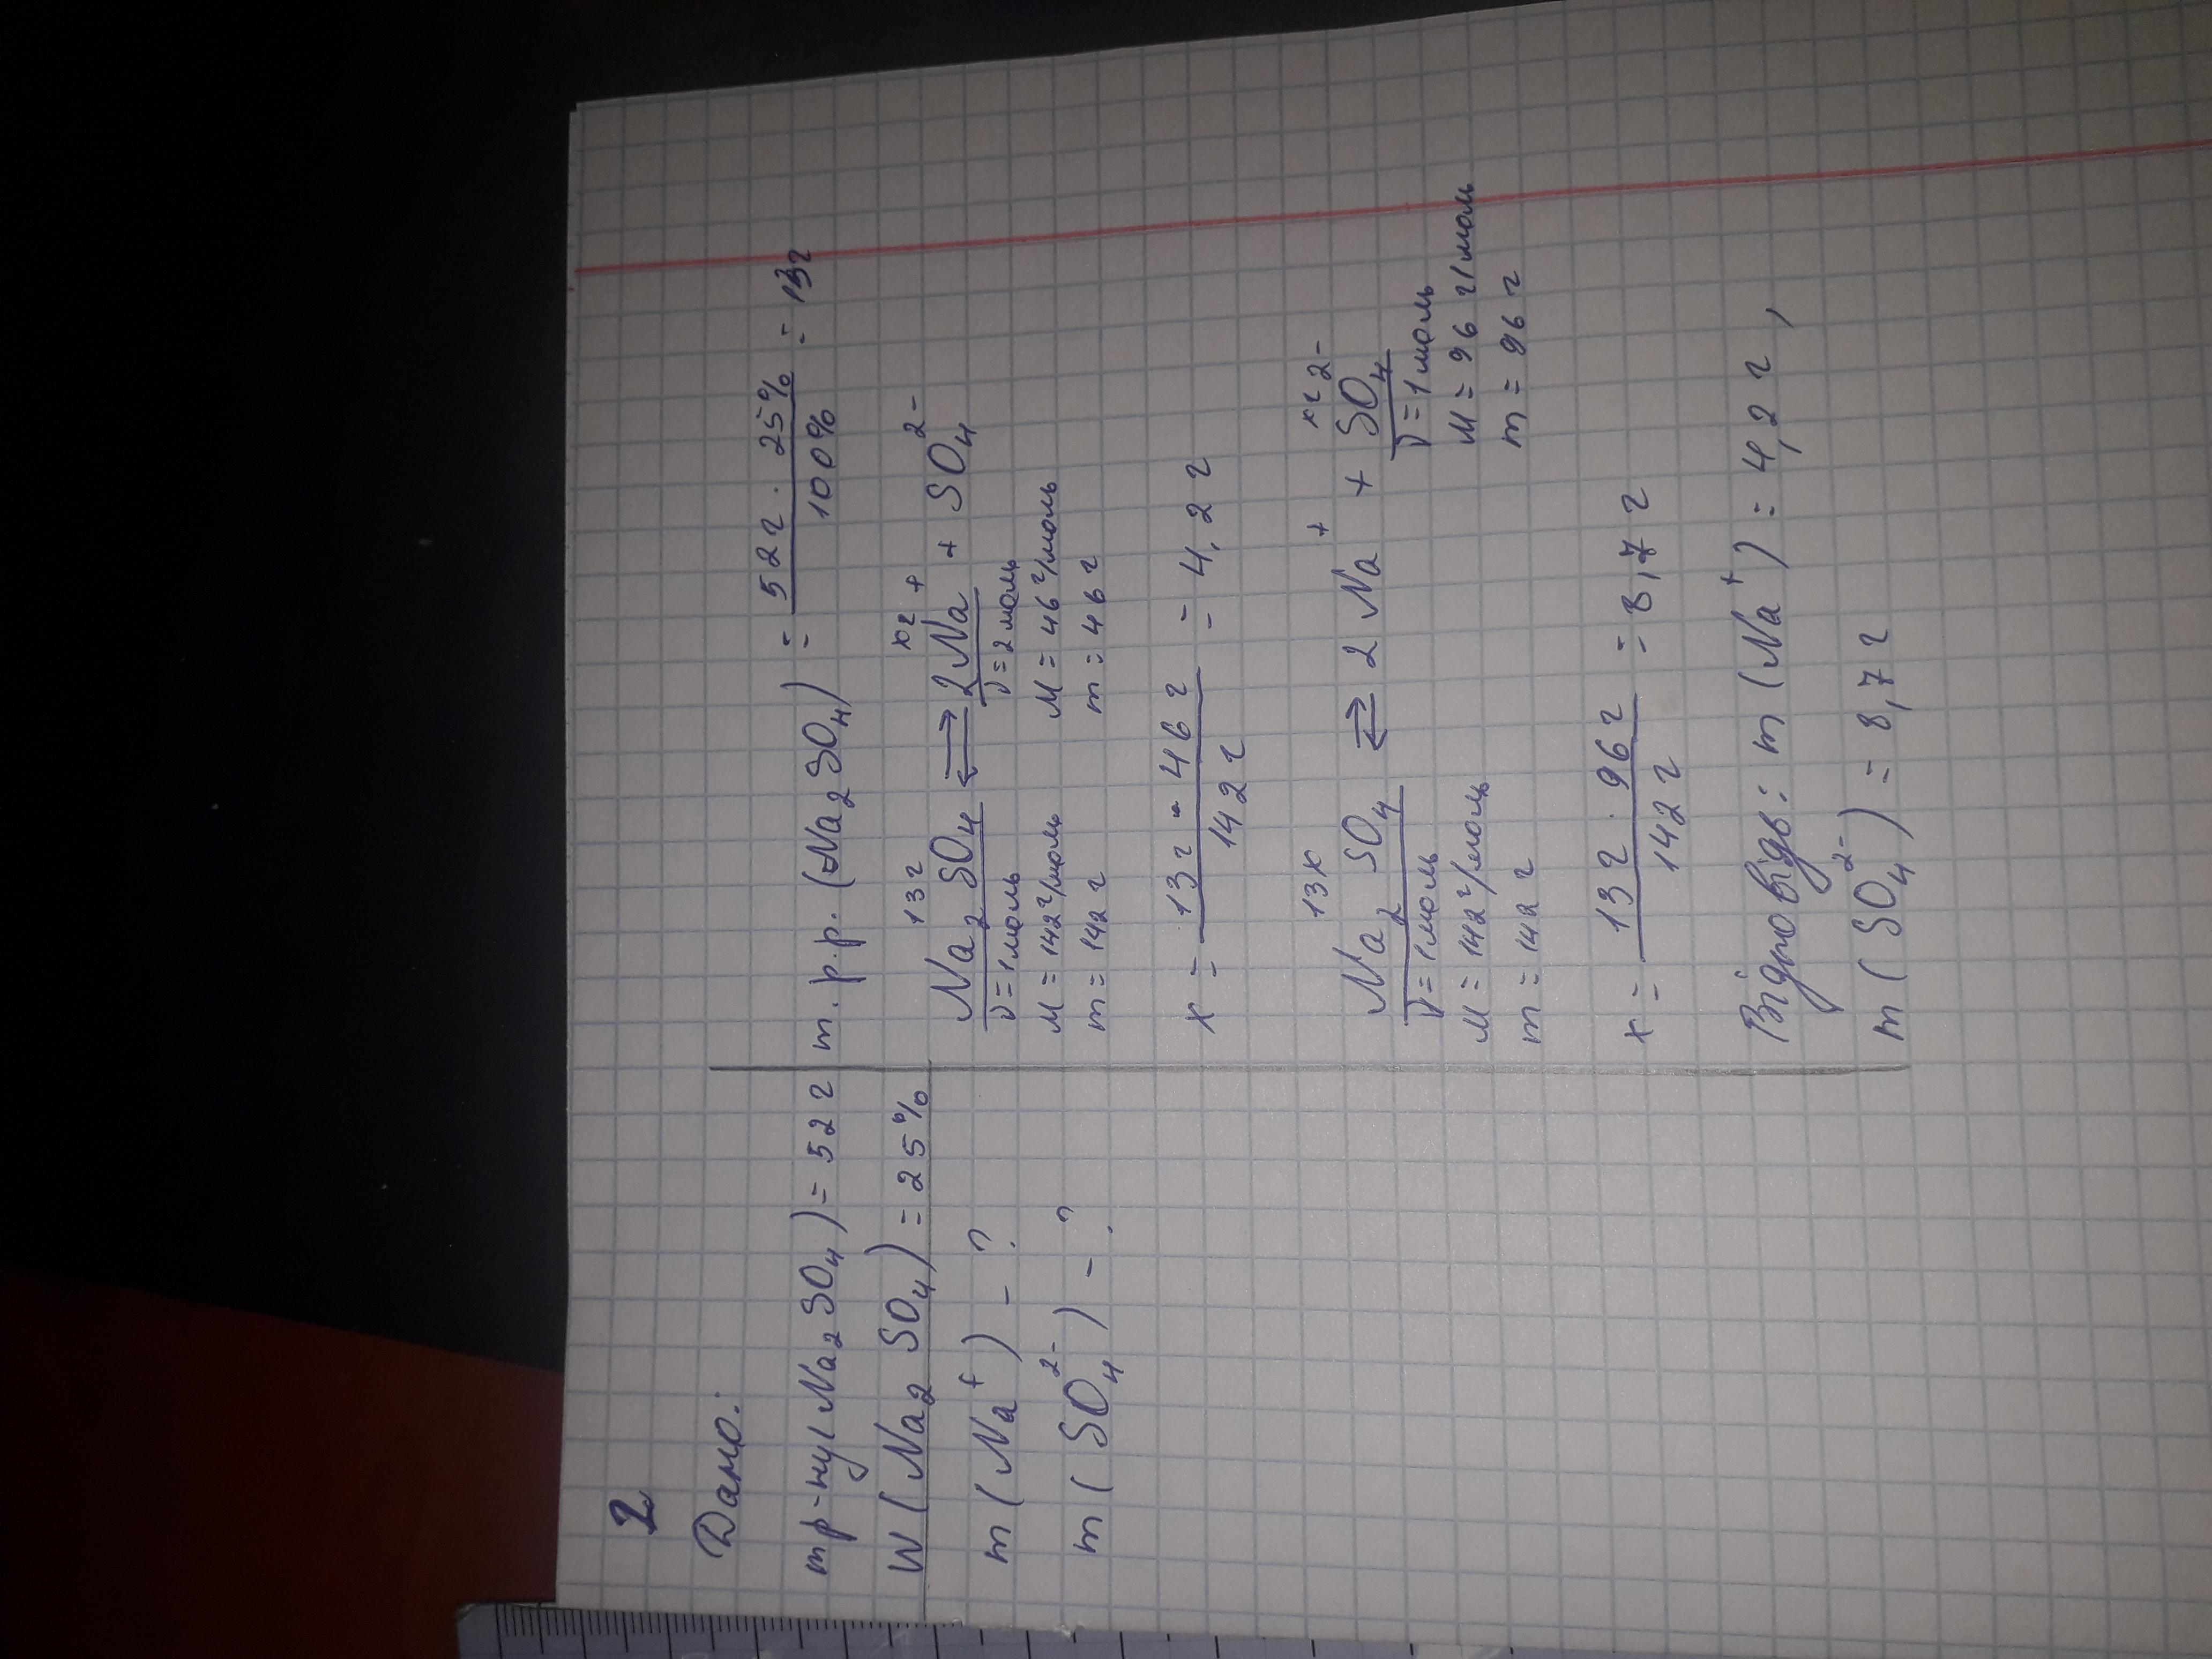 2
Дано:
m р-ну(Na₂SO₄) = 52 г
W(Na₂SO₄) = 25%
m(Na⁺) - ?
m(SO₄²⁻) - ?
m.р.р.(Na₂SO₄) = 52 г · 25% / 100% = 13 г
13 г xг
Na₂SO₄ ⇄ 2Na⁺ + SO₄²⁻
ν = 1 моль ν = 2 моль
M = 142 г/моль M = 46 г/моль
m = 142 г m = 46 г
x = 13 г · 46 г / 142 г = 4,2 г
13x xг
Na₂SO₄ ⇄ 2Na⁺ + SO₄²⁻
ν = 1 моль ν = 1 моль
M = 142 г/моль M = 96 г/моль
m = 142 г m = 96 г
x = 13 г · 96 г / 142 г = 8,7 г
Відповідь: m(Na⁺) = 4,2 г,
m(SO₄²⁻) = 8,7 г